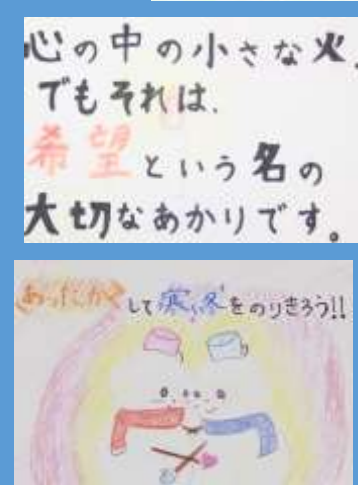 心の中の小さな火、
でもそれは、
希望という名の
大切なあかりです。
あったかくして寒い冬をのりきろう!!